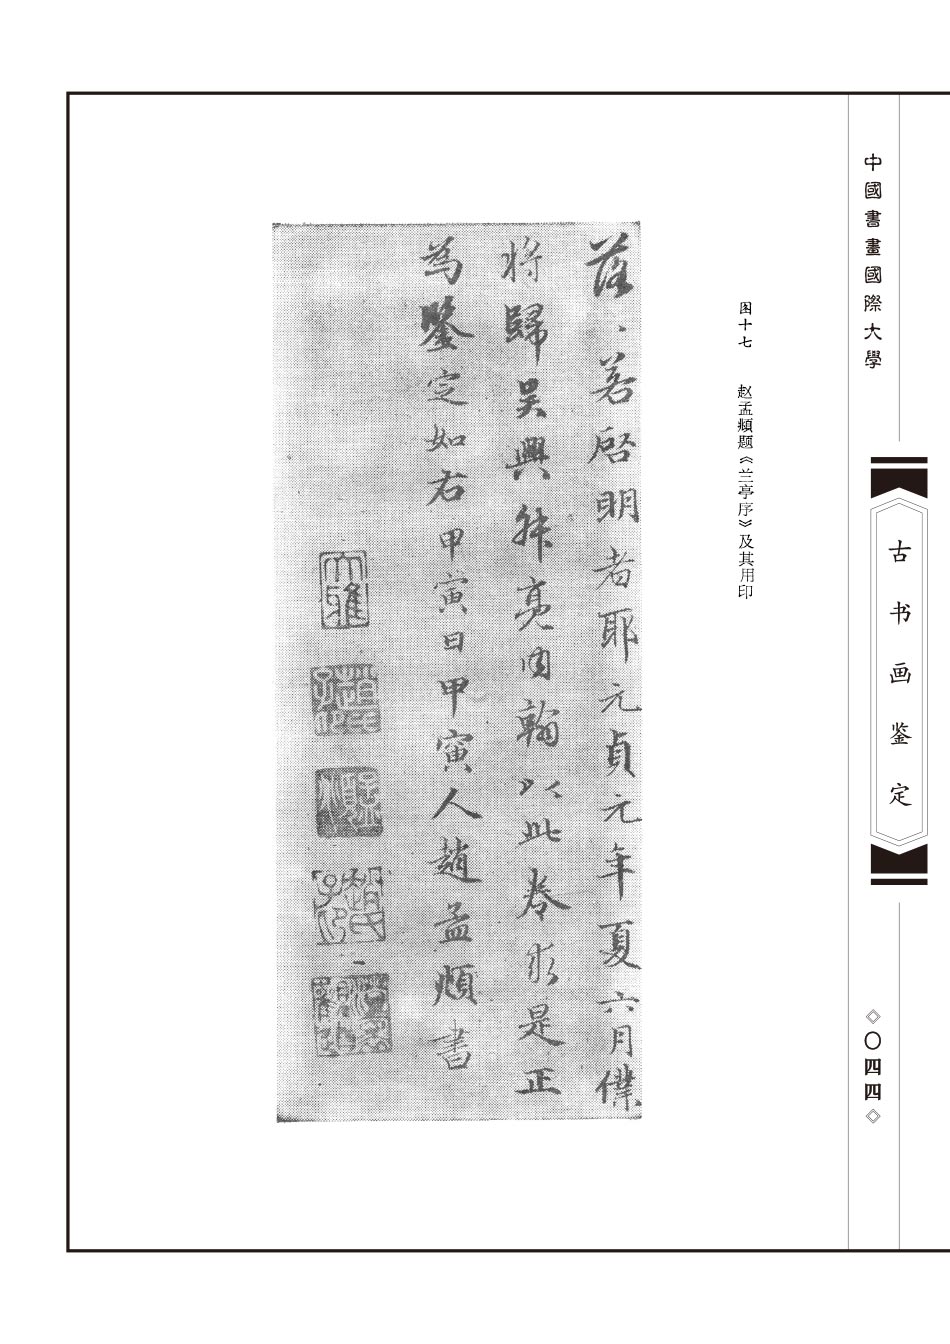 中國書畫國際大學
古书画鉴定
〇四四
图十七 赵孟頫题《兰亭序》及其用印
落、若启明者耶元貞元年夏六月僕
將歸吴興舜亮内翰以此卷求是正
為鑒定如右甲寅日甲寅人趙孟頫書
大雅